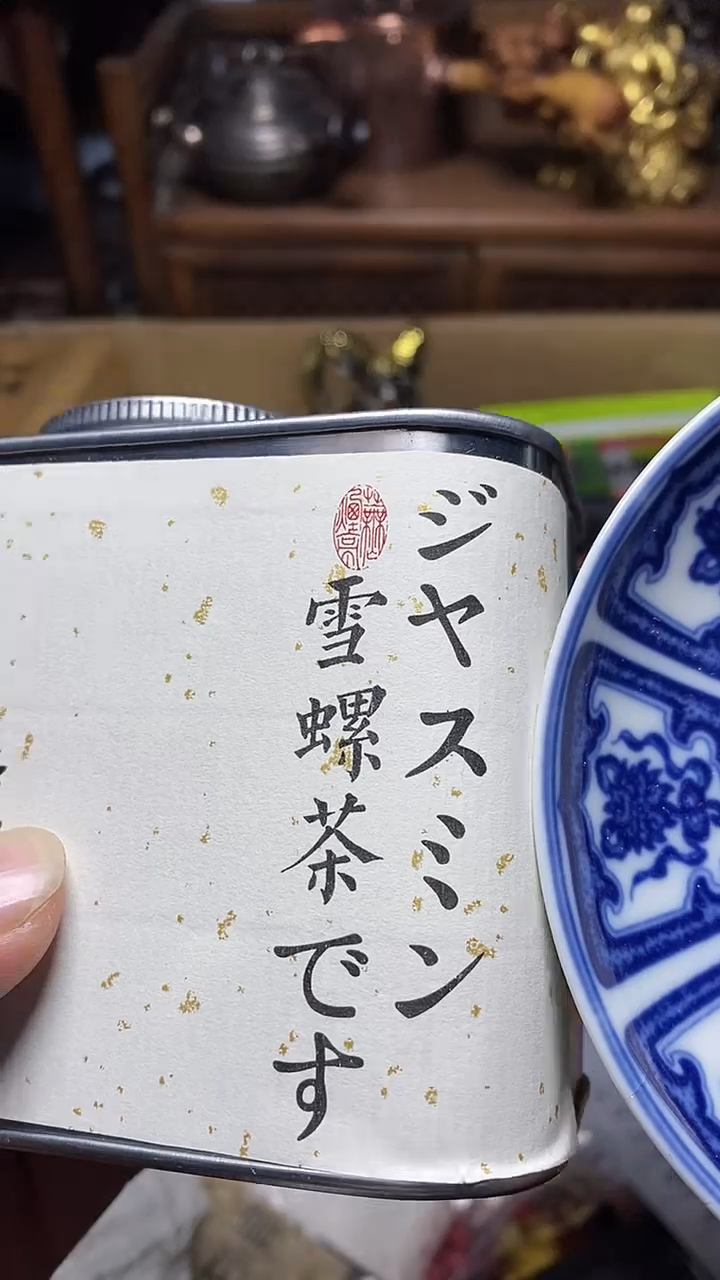 ジヤスミン
雪螺茶です